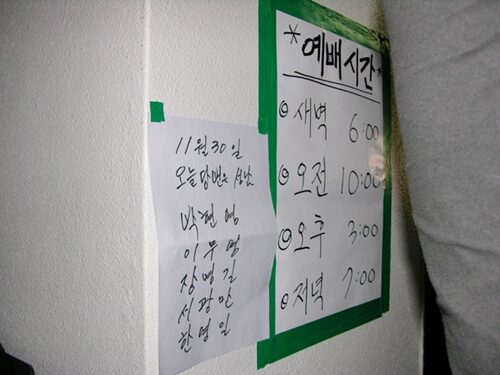 11월 30일
오늘당번은
박현영
이무영
장명길
서광만
한명일
* 예배시간 *
◎ 새벽 6:00
◎ 오전 10:00
◎ 오후 3:00
◎ 저녁 7:00